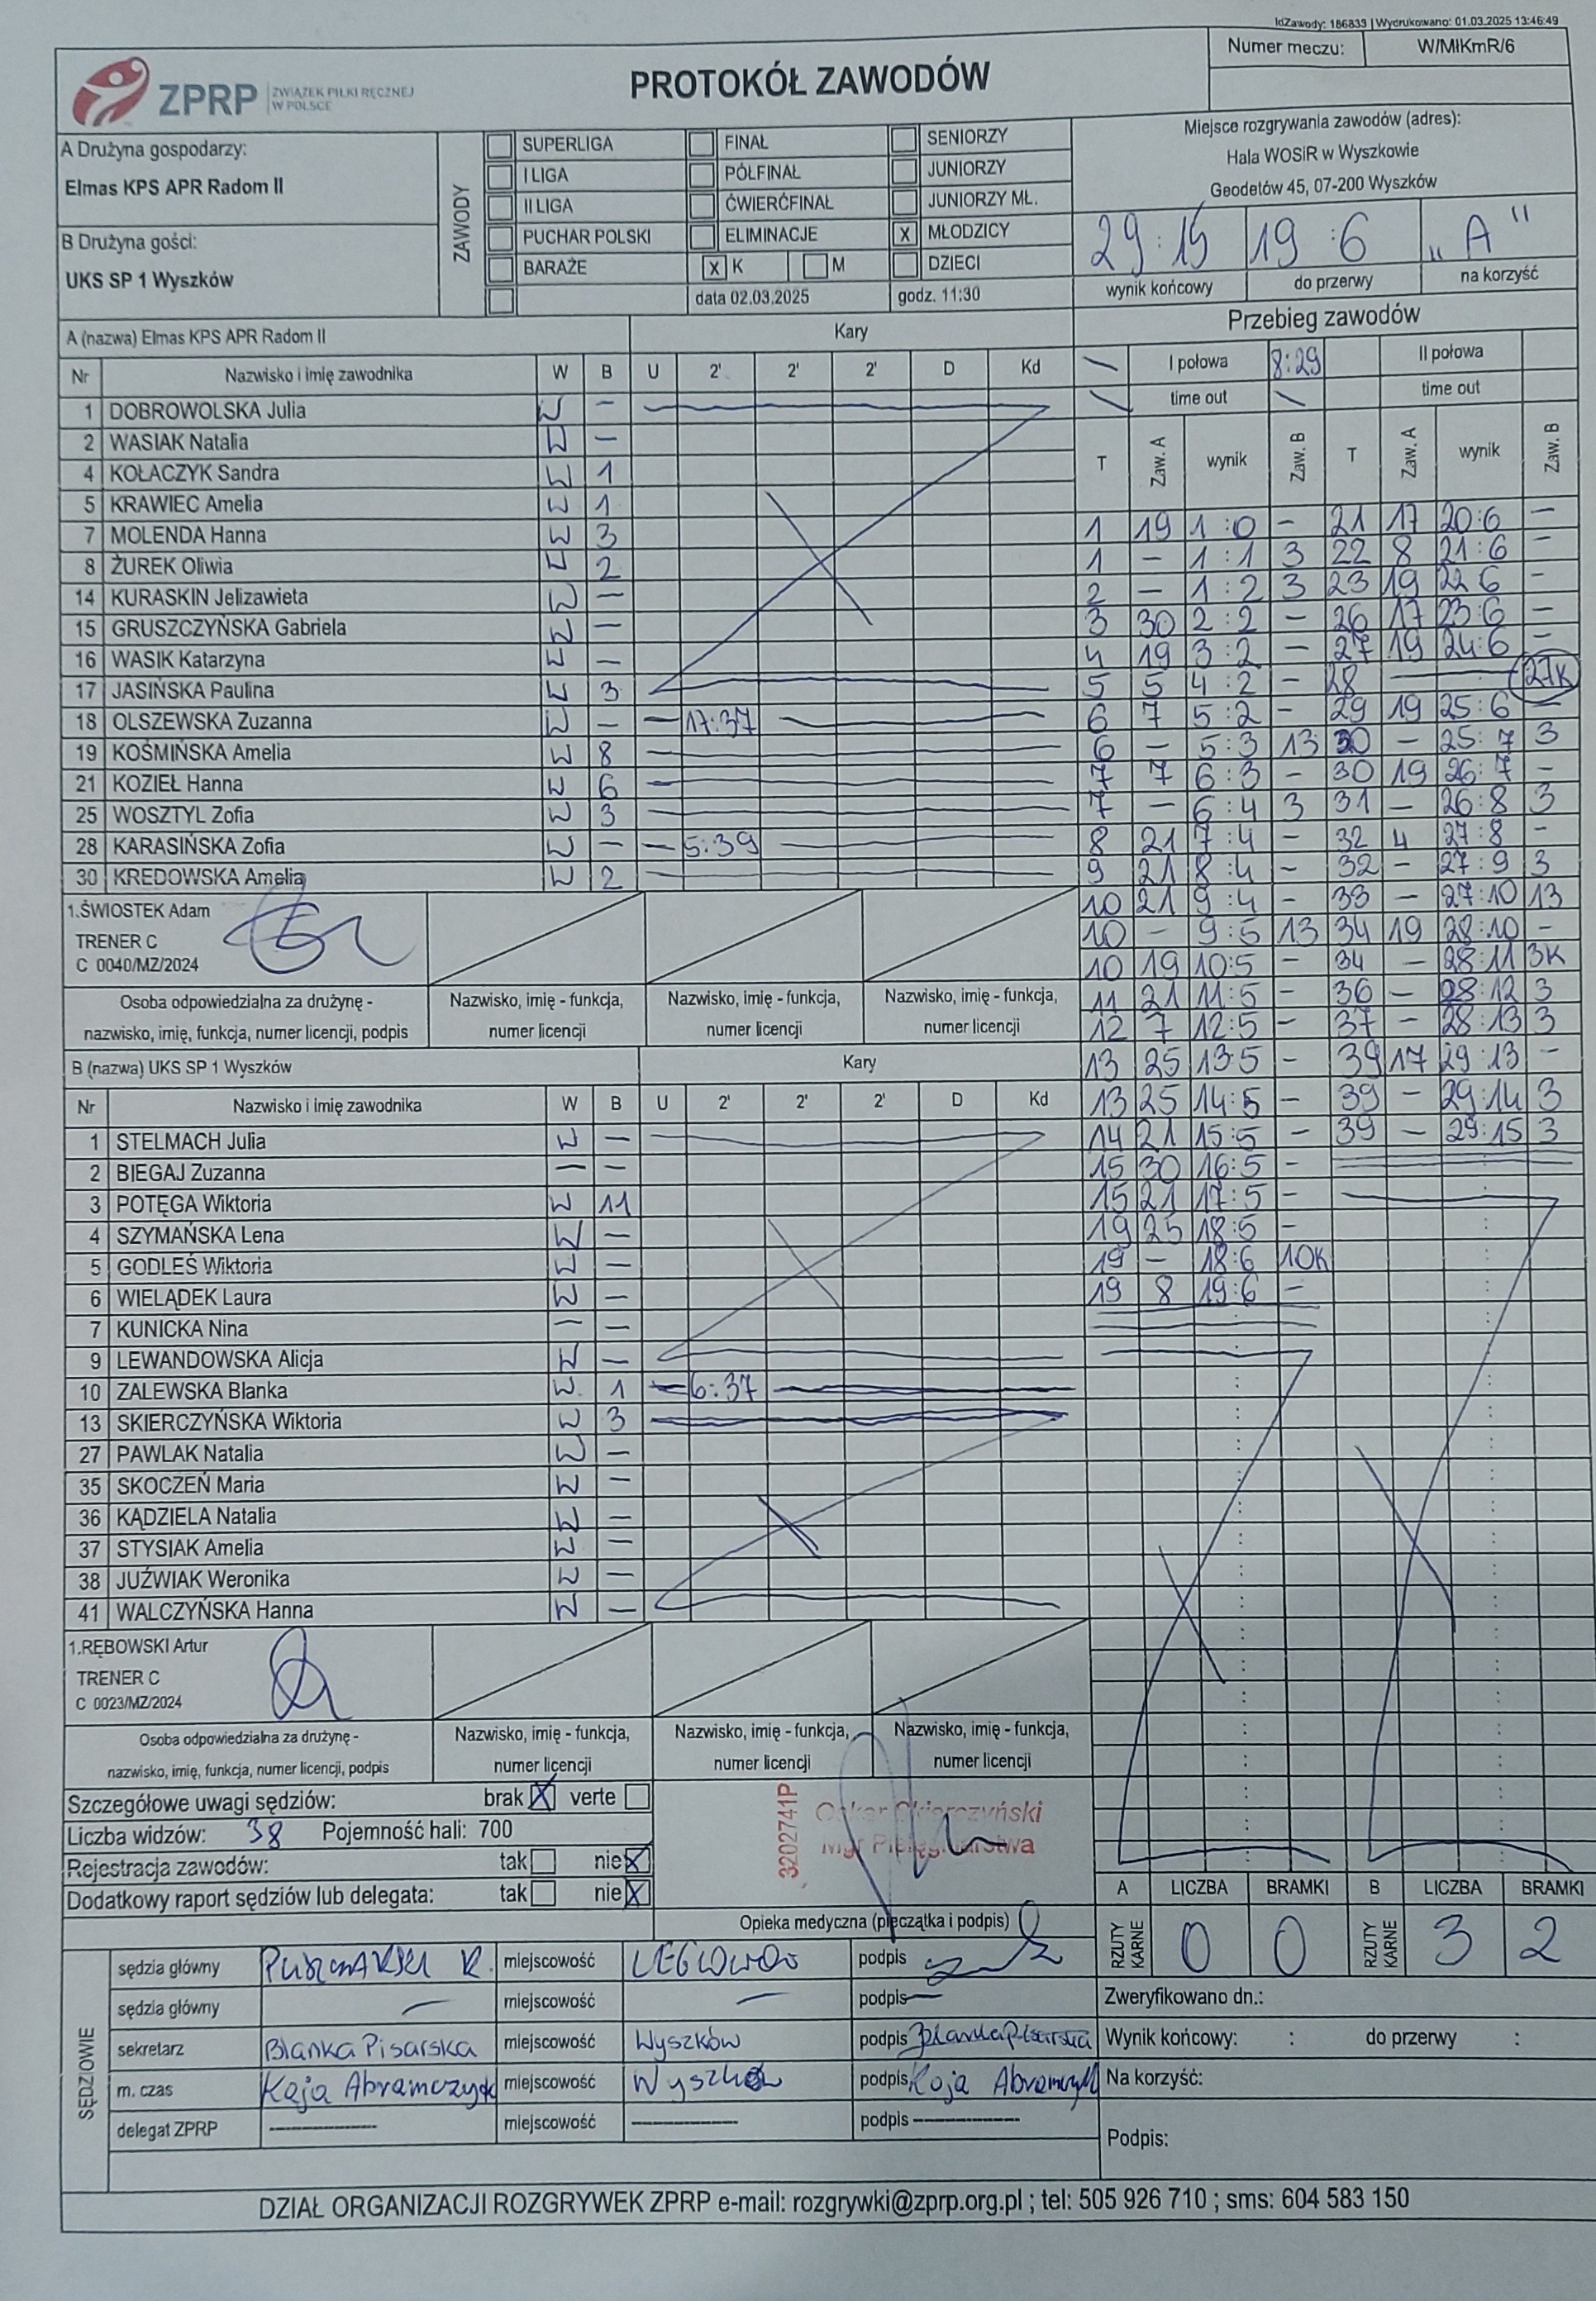 IdZawody: 186833 | Wydrukowano: 01.03.2025 13:46:49
Numer meczu: W/MłKmR/6
ZPRP ZWIĄZEK PIŁKI RĘCZNEJ W POLSCE
PROTOKÓŁ ZAWODÓW
A Drużyna gospodarzy:
Elmas KPS APR Radom II
B Drużyna gości:
UKS SP 1 Wyszków
ZAWODY
SUPERLIGA FINAŁ SENIORZY
I LIGA PÓŁFINAŁ JUNIORZY
II LIGA ĆWIERĆFINAŁ JUNIORZY MŁ.
PUCHAR POLSKI ELIMINACJE X MŁODZICY
BARAŻE X K M DZIECI
data 02.03.2025 godz. 11:30
Miejsce rozgrywania zawodów (adres):
Hala WOSiR w Wyszkowie
Geodetów 45, 07-200 Wyszków
29:15 19:6 „A"
wynik końcowy do przerwy na korzyść
A (nazwa) Elmas KPS APR Radom II Kary
Nr Nazwisko i imię zawodnika W B U 2' 2' 2' D Kd
1 DOBROWOLSKA Julia W –
2 WASIAK Natalia W –
4 KOŁACZYK Sandra W 1
5 KRAWIEC Amelia W 1
7 MOLENDA Hanna W 3
8 ŻUREK Oliwia W 2
14 KURASKIN Jelizawieta W –
15 GRUSZCZYŃSKA Gabriela W –
16 WASIK Katarzyna W –
17 JASIŃSKA Paulina W 3
18 OLSZEWSKA Zuzanna W – – 17:37 –
19 KOŚMIŃSKA Amelia W 8
21 KOZIEŁ Hanna W 6
25 WOSZTYL Zofia W 3
28 KARASIŃSKA Zofia W – – 5:39 –
30 KREDOWSKA Amelia W 2
1.ŚWIOSTEK Adam
TRENER C
C 0040/MZ/2024
Osoba odpowiedzialna za drużynę - nazwisko, imię, funkcja, numer licencji, podpis
Nazwisko, imię - funkcja, numer licencji
Nazwisko, imię - funkcja, numer licencji
Nazwisko, imię - funkcja, numer licencji
B (nazwa) UKS SP 1 Wyszków Kary
Nr Nazwisko i imię zawodnika W B U 2' 2' 2' D Kd
1 STELMACH Julia W –
2 BIEGAJ Zuzanna – –
3 POTĘGA Wiktoria W 11
4 SZYMAŃSKA Lena W –
5 GODLEŚ Wiktoria W –
6 WIELĄDEK Laura W –
7 KUNICKA Nina – –
9 LEWANDOWSKA Alicja W –
10 ZALEWSKA Blanka W 1 – 6:37 –
13 SKIERCZYŃSKA Wiktoria W 3
27 PAWLAK Natalia W –
35 SKOCZEŃ Maria W –
36 KĄDZIELA Natalia W –
37 STYSIAK Amelia W –
38 JUŹWIAK Weronika W –
41 WALCZYŃSKA Hanna W –
1.RĘBOWSKI Artur
TRENER C
C 0023/MZ/2024
Osoba odpowiedzialna za drużynę - nazwisko, imię, funkcja, numer licencji, podpis
Nazwisko, imię - funkcja, numer licencji
Nazwisko, imię - funkcja, numer licencji
Nazwisko, imię - funkcja, numer licencji
Przebieg zawodów
I połowa 8:29 II połowa
time out time out
T Zaw. A wynik Zaw. B T Zaw. A wynik Zaw. B
1 19 1:0 – 21 17 20:6 –
1 – 1:1 3 22 8 21:6 –
2 – 1:2 3 23 19 22 6 –
3 30 2:2 – 26 17 23:6 –
4 19 3:2 – 27 19 24:6 –
5 5 4:2 – 28 – 27K
6 7 5:2 – 29 19 25:6 –
6 – 5:3 13 30 – 25:7 3
7 7 6:3 – 30 19 26:7 –
7 – 6:4 3 31 – 26:8 3
8 21 7:4 – 32 4 27:8 –
9 21 8:4 – 32 – 27:9 3
10 21 9:4 – 33 – 27:10 13
10 – 9:5 13 34 19 28:10 –
10 19 10:5 – 34 – 28:11 3K
11 21 11:5 – 36 – 28:12 3
12 7 12:5 – 37 – 28:13 3
13 25 13:5 – 39 17 29:13 –
13 25 14:5 – 39 – 29:14 3
14 21 15:5 – 39 – 29:15 3
15 30 16:5 –
15 21 17:5 –
19 25 18:5 –
19 – 18:6 10K
19 8 19:6 –
Szczegółowe uwagi sędziów: brak X verte
Liczba widzów: 38 Pojemność hali: 700
Rejestracja zawodów: tak nie X
Dodatkowy raport sędziów lub delegata: tak nie X
3202741P
Mgr Pielęgniarstwa
Opieka medyczna (pieczątka i podpis)
A LICZBA BRAMKI B LICZBA BRAMKI
RZUTY KARNE 0 0 RZUTY KARNE 3 2
SĘDZIOWIE
sędzia główny miejscowość LEGIONOWO podpis
sędzia główny – miejscowość – podpis –
sekretarz Blanka Pisarska miejscowość Wyszków podpis Blanka Pisarska
m. czas Kaja Abramczyk miejscowość Wyszków podpis Kaja Abramczyk
delegat ZPRP – miejscowość – podpis –
Zweryfikowano dn.:
Wynik końcowy: : do przerwy :
Na korzyść:
Podpis:
DZIAŁ ORGANIZACJI ROZGRYWEK ZPRP e-mail: rozgrywki@zprp.org.pl ; tel: 505 926 710 ; sms: 604 583 150